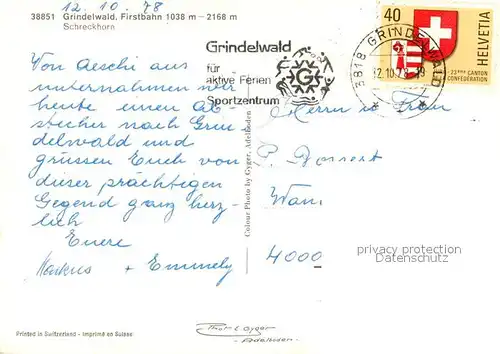 12. 10. 78
38851 Grindelwald, Firstbahn 1038 m – 2168 m
Schreckhorn
Grindelwald
für
aktive Ferien
Sportzentrum
G
3818 GRINDELWALD
12.10.78-19
40
HELVETIA
23ème CANTON
CONFEDERATION
Von Aeschi aus
unternahmen wir
heute einen Ab-
stecher nach Grin-
delwald und
grüssen Euch von
dieser prächtigen
Gegend ganz herz-
lich
Euere
Markus + Emmely
Colour Photo by Gyger, Adelboden
Herrn u. Frau
P.
4000
privacy protection
DANIMARX.CH
Printed in Switzerland - Imprimé en Suisse
Gyger
Adelboden